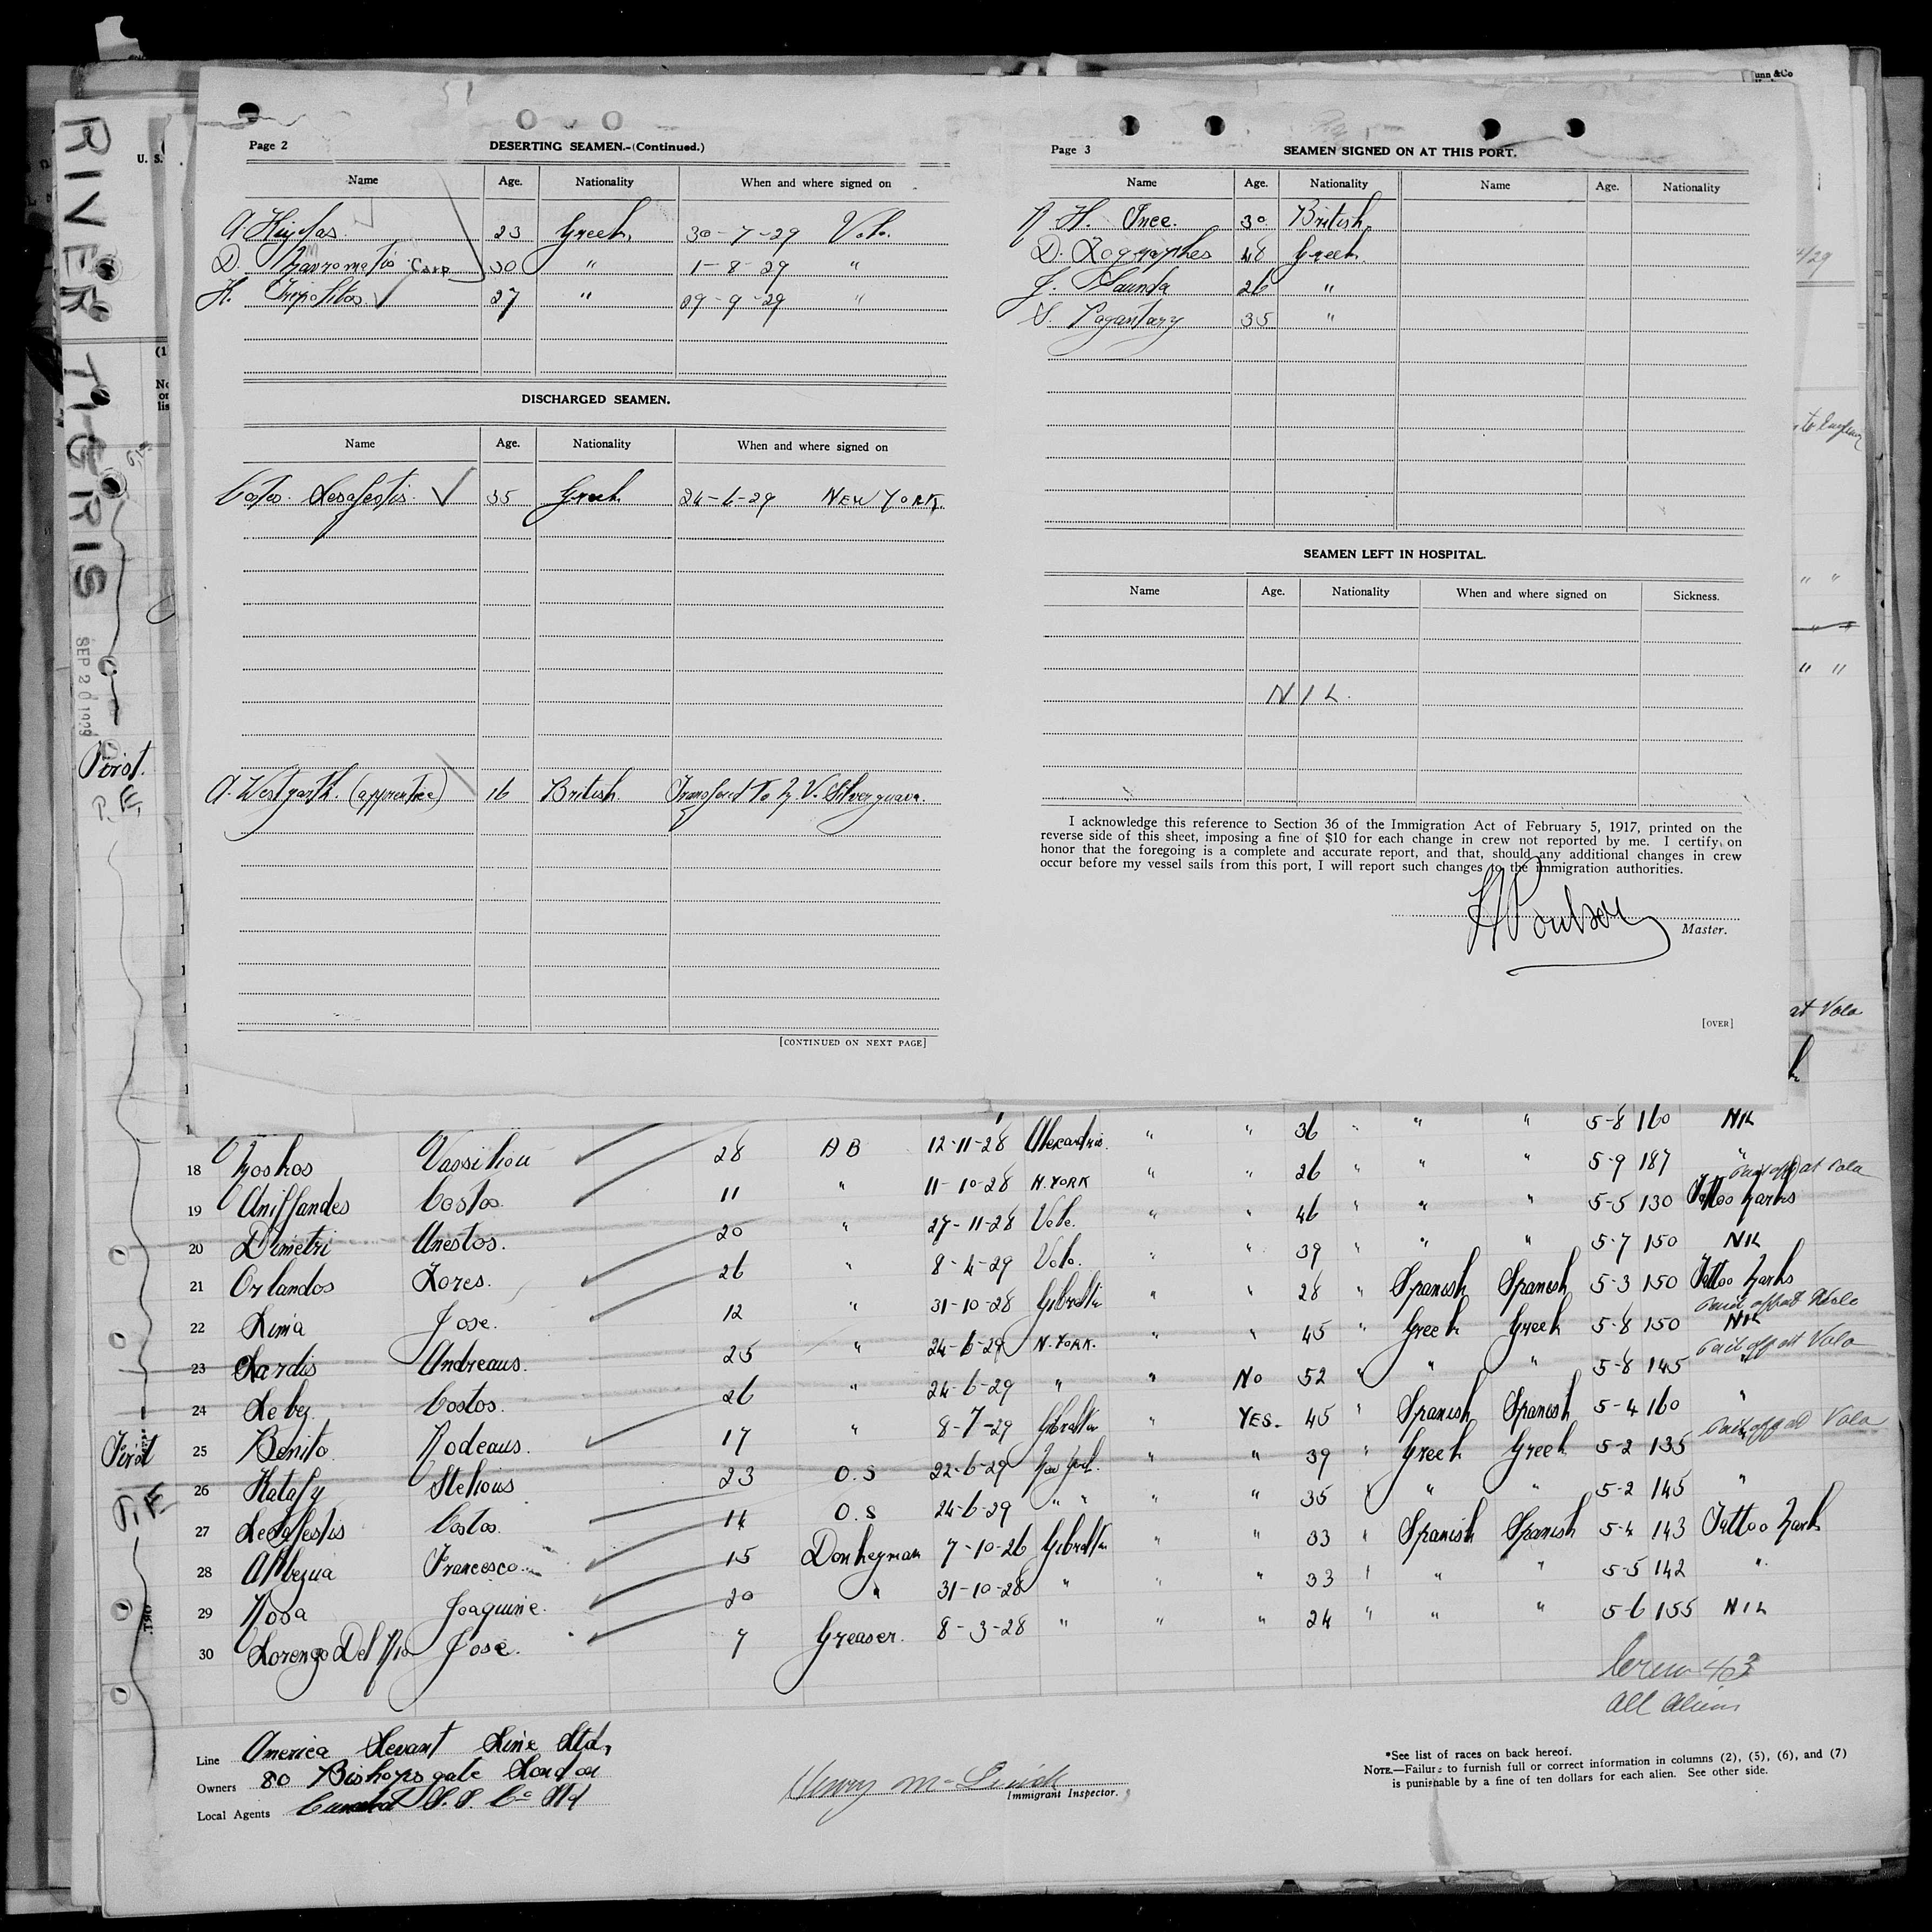 unn &Co
RIVER TIGRIS
SEP 20 1929
U. S.
Page 2
DESERTING SEAMEN.-(Continued.)
Name Age. Nationality When and where signed on
A. 23 Greek 30-7-29 Volo.
D. Mavrometis Carp 30 " 1-8-29 "
H. Tripolitas 27 " 09-9-29 "
DISCHARGED SEAMEN.
Name Age. Nationality When and where signed on
Costos. 35 Greek 24-6-29 NEW YORK.
A. Westgarth. (apprentice) 16 British. to M. V. Silverguava.
[CONTINUED ON NEXT PAGE]
Page 3
SEAMEN SIGNED ON AT THIS PORT.
Name Age. Nationality Name Age. Nationality
H. 30 British.
D. Zographos 48 Greek
J. 26 "
S. 35 "
SEAMEN LEFT IN HOSPITAL.
Name Age. Nationality When and where signed on Sickness.
NIL.
I acknowledge this reference to Section 36 of the Immigration Act of February 5, 1917, printed on the
reverse side of this sheet, imposing a fine of $10 for each change in crew not reported by me. I certify on
honor that the foregoing is a complete and accurate report, and that, should any additional changes in crew
occur before my vessel sails from this port, I will report such changes to the immigration authorities.
Master.
[OVER]
at Volo
First.
P.E.
36 " " 5-8 160 NIL
18 Vassiliou 28 AB 12-11-28 Alexandria. " " 26 " " " 5-9 187 "
19 Costos 11 " 11-10-28 N.YORK " " 46 " " " 5-5 130 Tattoo Marks
20 Dimetri Anestos. 20 " 27-11-28 Volo. " " 39 " " " 5-7 150 NIL
21 Orlandos Zores. 26 " 8-4-29 Volo. " " 28 " Spanish Spanish 5-3 150 Tattoo Marks
22 Lima Jose. 12 " 31-10-28 Gibralta " " 45 " Greek Greek 5-8 150 NIL
23 Lardis Andreaus. 25 " 24-6-29 N.YORK. " No 52 " " " 5-8 145
24 Costos. 26 " 24-6-29 " " YES. 45 " Spanish Spanish 5-4 160 "
25 Benito Rodeaus. 17 " 8-7-29 Gibralta " " 39 " Greek Greek 5-2 135
26 Katafy Stelious 23 O.S 22-6-29 New York. " " 35 " " " 5-2 145 "
27 Costos. 14 O.S 24-6-29 " " " " 33 " Spanish Spanish 5-4 143 Tattoo Mark
28 Francesco. 15 Donkeyman 7-10-26 Gibralta " " 33 " " " 5-5 142 "
29 Rosa Joaquine. 20 " 31-10-28 " " " 24 " " " 5-6 155 NIL
30 Lorenzo Del Rio Jose. 7 Greaser. 8-3-28 "
First
P.E
Crew 403
all aliens
Line America Levant Line Ltd,
Owners 80 Bishopsgate London
Local Agents Cunard S.S. Co Ltd
Immigrant Inspector.
*See list of races on back hereof.
NOTE.—Failure to furnish full or correct information in columns (2), (5), (6), and (7)
is punishable by a fine of ten dollars for each alien. See other side.